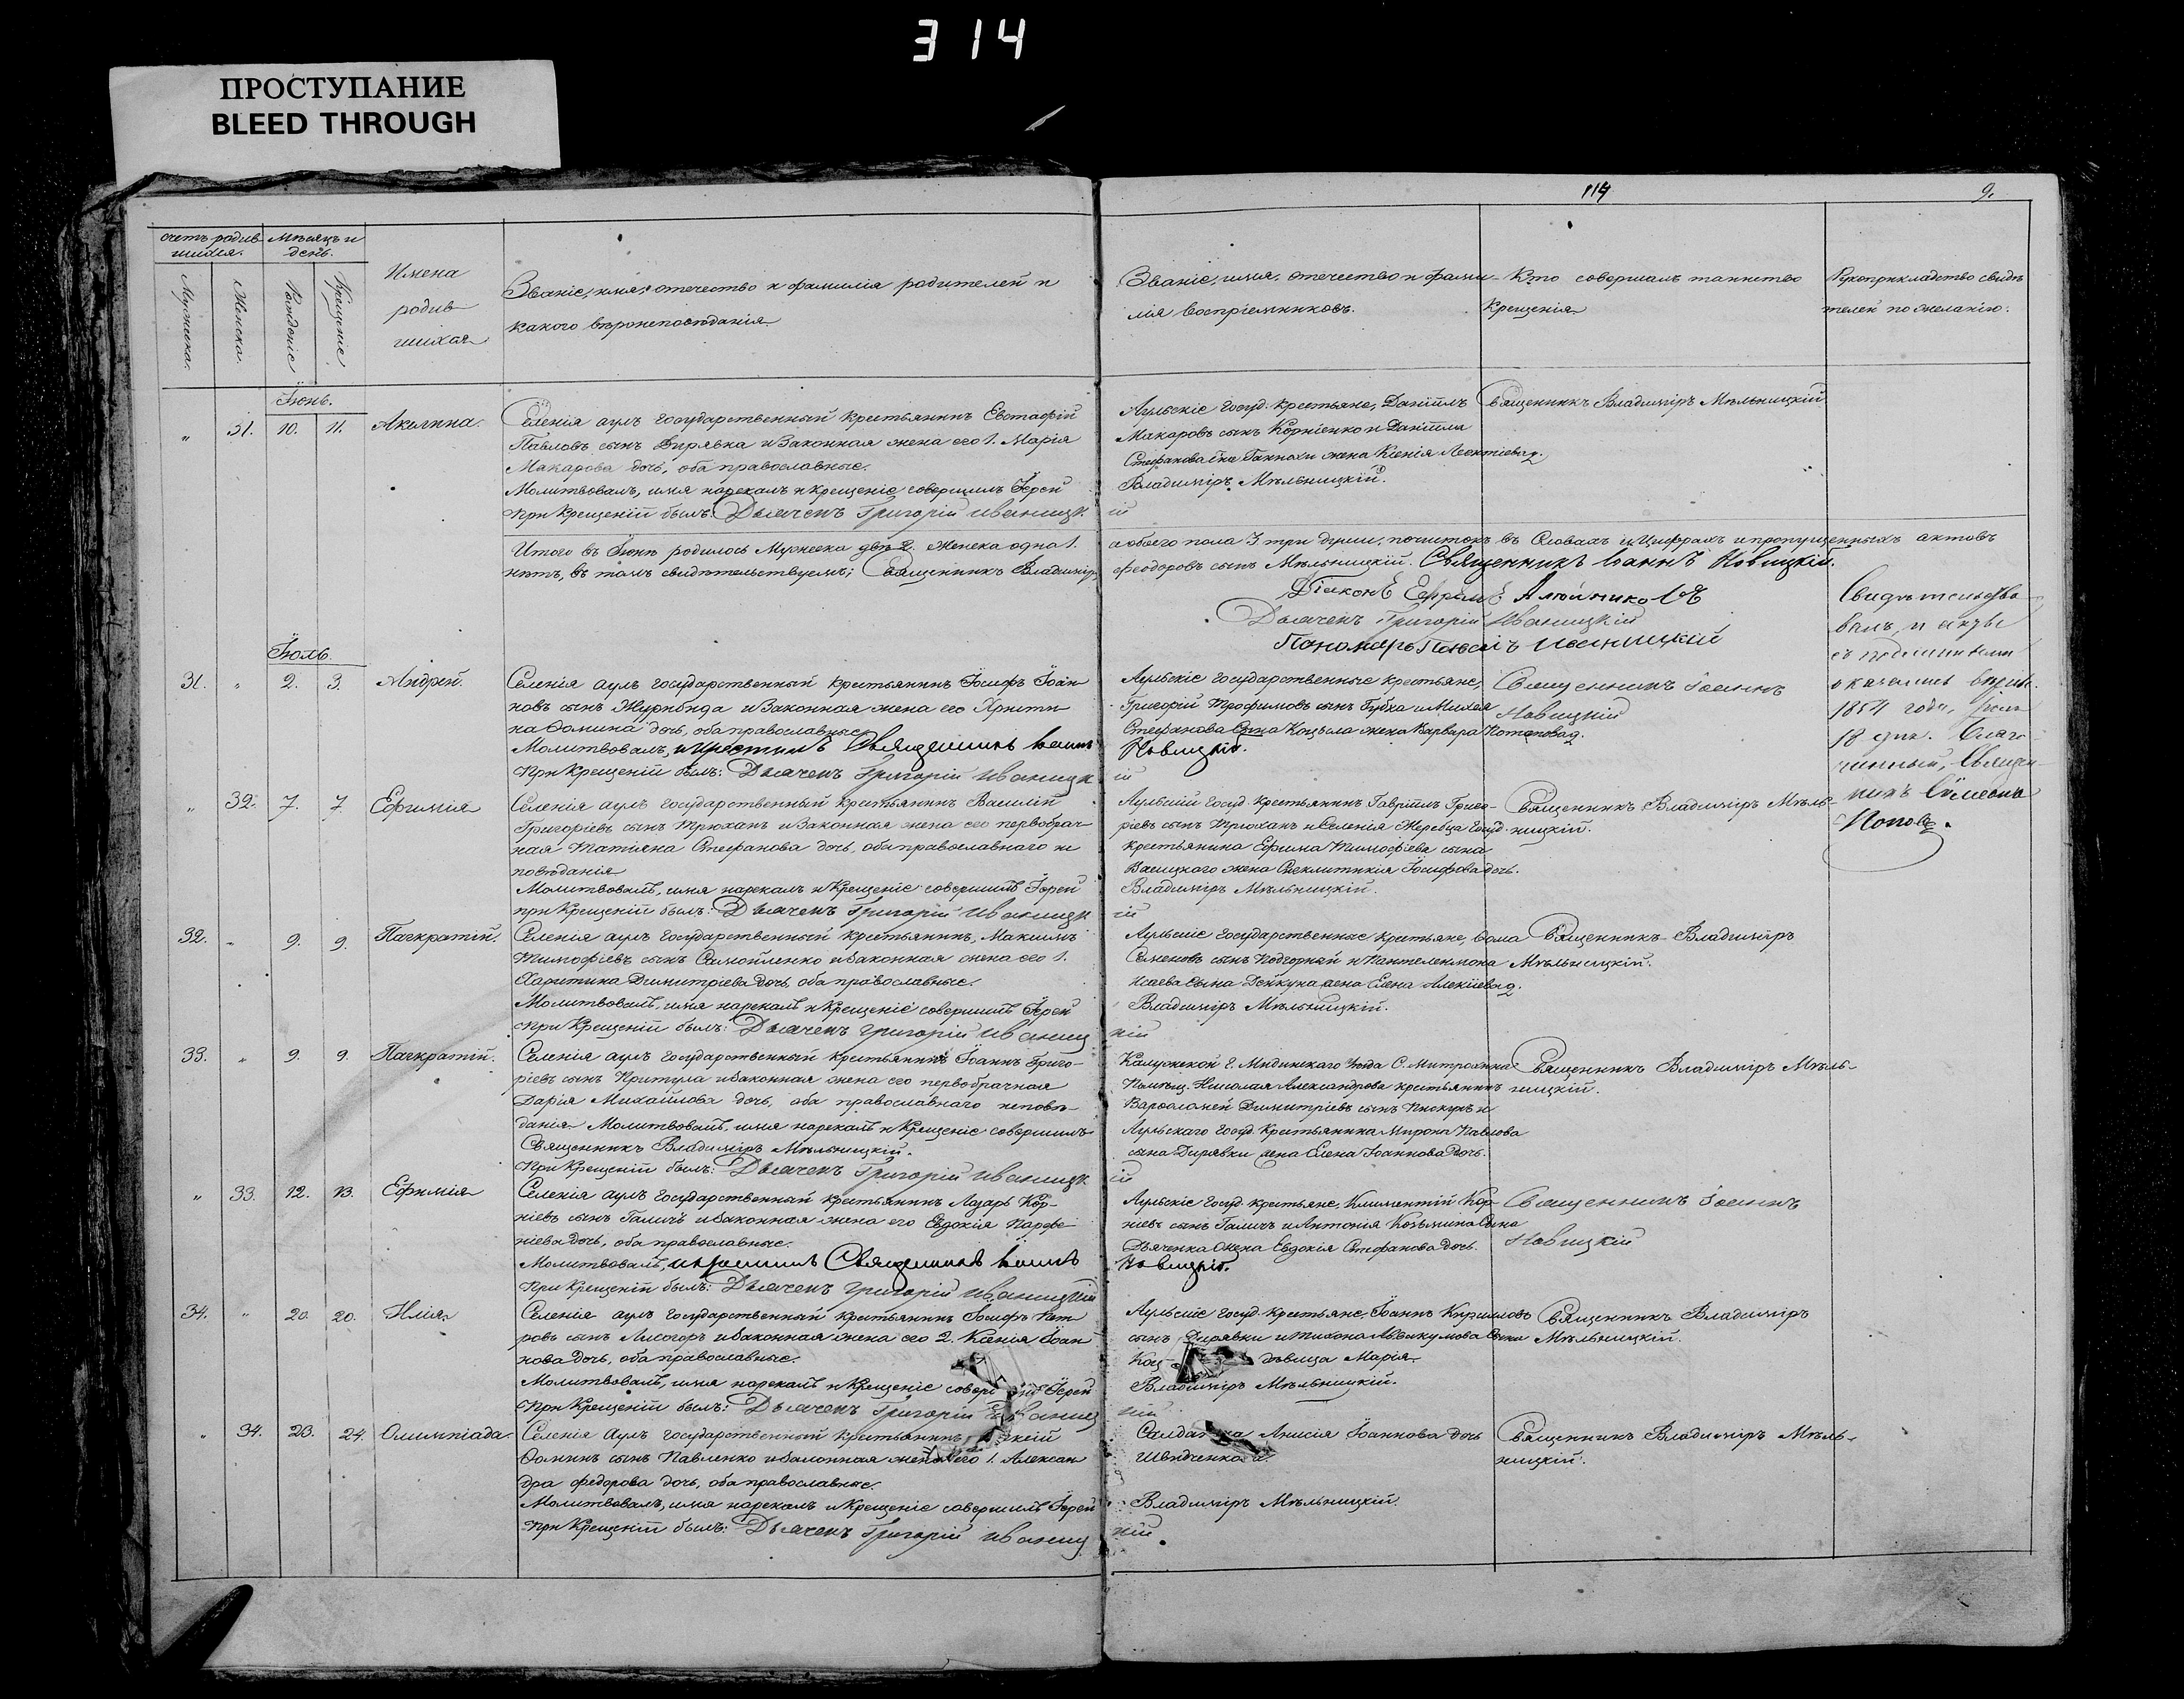 314
ПРОСТУПАНИЕ
BLEED THROUGH
114
9.
Счетъ родив-
шихся.
Мѣсяцъ и
день.
Мужеска.
Женска.
Рожденіе
Крещеніе
Имена
родив
шихся
Званіе, имя, отечество и фамилія родителей и
какого вѣроисповѣданія
Званіе, имя, отечество и фами-
лія воспріемниковъ.
Кто совершалъ таинство
Крещенія
Рукоприкладство свидѣ
телей по желанію:
Іюнь.
„ 31. 10. 11. Акилина.
Селенія аулъ государственный крестьянинъ Евстафій
Павловъ сынъ Дирявка и Законная жена его 1. Марія
Макарова дочь, оба православные.
Молитвовалъ, имя нарекалъ и Крещеніе совершилъ Іерей
при Крещеніи былъ: Дьячекъ Григорій Иваницк
Аульскіе госуд. крестьяне, Даніилъ
Макаровъ сынъ Корніенко и Даніила
Стефанова сына жена Ксенія Леонтіева д.
Владиміръ Мѣльницкій.
ій
Священникъ Владиміръ Мѣльницкій
Итого въ Іюнѣ родилось Мужеска два 2. Женска одна 1. а обоего пола 3 три души, почистокъ въ Словахъ и Цифрахъ и пропущенныхъ актовъ
нѣтъ, въ томъ свидѣтельствуемъ; Священникъ Владиміръ Феодоровъ сынъ Мѣльницкій. Священникъ Іоаннъ Новицкій.
Діаконъ Ефремъ
Дьячекъ Григорій Иваницкій
Пономарь
Свидѣтельство-
валъ, и акты
съ подлинными
оказались вѣрны.
1854 года, Іюля
18 дня. Благо-
чинный, Священ-
никъ Симеонъ
Поповъ.
Іюль.
31. „ 2. 3. Андрей.
Селенія аулъ государственный крестьянинъ Іосифъ Іоан
новъ сынъ Журибида и Законная жена его Христи
на Фомина дочь, оба православные
Молитвовалъ, и крестилъ Священникъ Іоаннъ
При Крещеніи былъ: Дьячекъ Григорій Иваницк
Аульскіе государственные крестьяне,
Григорій Трофимовъ сынъ Губка и Михаила
Стефанова Сына Коцюла жена Варвара Потапова д.
Новицкій.
ій
Священникъ Іоаннъ
Новицкій
„ 32. 7. 7. Ефимія
Селенія аулъ государственный крестьянинъ Василій
Григоріевъ сынъ Трюханъ и Законная жена его первобрач
ная Татіана Стефанова дочь, оба православнаго ис
повѣданія
Молитвовалъ, имя нарекалъ и Крещеніе совершилъ Іерей
при Крещеніи былъ: Дьячекъ Григорій Иваницк
Аульскій госуд. крестьянинъ Гавріилъ Григо-
ріевъ сынъ Трюханъ и Селенія Жеребца Госуд.
крестьянина Ефима Тимофіева сына
Васицкого жена Синклитикія Іосифова дочь.
Владиміръ Мѣльницкій.
ій
Священникъ Владиміръ Мѣль-
ницкій.
32. „ 9. 9. Панкратій.
Селенія аулъ государственный крестьянинъ, Максимъ
Тимофіевъ сынъ Самойленко и Законная жена его 1.
Харитина Димитріева дочь, оба православные.
Молитвовалъ, имя нарекалъ и Крещеніе совершилъ Іерей
при Крещеніи былъ: Дьячекъ Григорій Иваниц
Аульскіе государственные крестьяне, Фома
Семеновъ сынъ Подгорный и Пантелеимона
Исаева Сына жена Елена Алексіева д.
Владиміръ Мѣльницкій.
кій
Священникъ Владиміръ
Мѣльницкій.
33. „ 9. 9. Панкратій.
Селенія аулъ государственный крестьянинъ Іоаннъ Григо-
ріевъ сынъ Притула и Законная жена его первобрачная
Дарія Михайлова дочь, оба православнаго исповѣ-
данія. Молитвовалъ, имя нарекалъ и Крещеніе совершилъ
Священникъ Владиміръ Мѣльницкій.
При Крещеніи былъ: Дьячекъ Григорій Иваницк
Калужской Г. Мядинскаго Уѣзда С.
Помѣщ. Николая Александрова крестьянинъ
Варфоломей Димитріевъ сынъ и
Аульскаго Госуд. Крестьянина Мирона Павлова
сына Дирявки жена Елена Іоаннова дочь.
ій
Священникъ Владиміръ Мѣль-
ницкій.
„ 33. 12. 13. Ефимія
Селенія аулъ государственный крестьянинъ Лазарь Кор-
ніевъ сынъ Галичъ и Законная жена его Евдокія Парфе
ніева дочь, оба православные.
Молитвовалъ, и крестилъ Священникъ Іоаннъ
При Крещеніи былъ: Дьячекъ Григорій Иваницкій
Аульскіе Госуд. крестьяне, Климентій Кор-
ніевъ сынъ Галичъ и Антонія Козьмина Сына
Дьяченка жена Евдокія Стефанова дочь.
Новицкій.
Священникъ Іоаннъ
Новицкій
34. „ 20. 20. Илія.
Селенія аулъ государственный крестьянинъ Іосифъ Пет
ровъ сынъ Лисогоръ и Законная жена его 2. Ксенія Іоан
нова дочь, оба православные.
Молитвовалъ, имя нарекалъ и Крещеніе совер Іерей
При Крещеніи былъ: Дьячекъ Григорій Иваниц
Аульскіе госуд. крестьяне, Іоаннъ Кириловъ
сынъ Дирявки и Тихона Аввакумова Сына
Коц дѣвица Марія.
Владиміръ Мѣльницкій.
кій
Священникъ Владиміръ
Мѣльницкій.
„ 34. 23. 24. Олимпіада.
Селенія Аулъ государственный крестьянинъ
Фоминъ сынъ Павленко и Законная жена его 1. Алексан
дра Федорова дочь, оба православные.
Молитвовалъ, имя нарекалъ и Крещеніе совершилъ Іерей
При Крещеніи былъ: Дьячекъ Григорій Иваниц
Салда ка Анисія Іоаннова дочь
Швидченкова.
Владиміръ Мѣльницкій.
кій
Священникъ Владиміръ Мѣль-
ницкій.